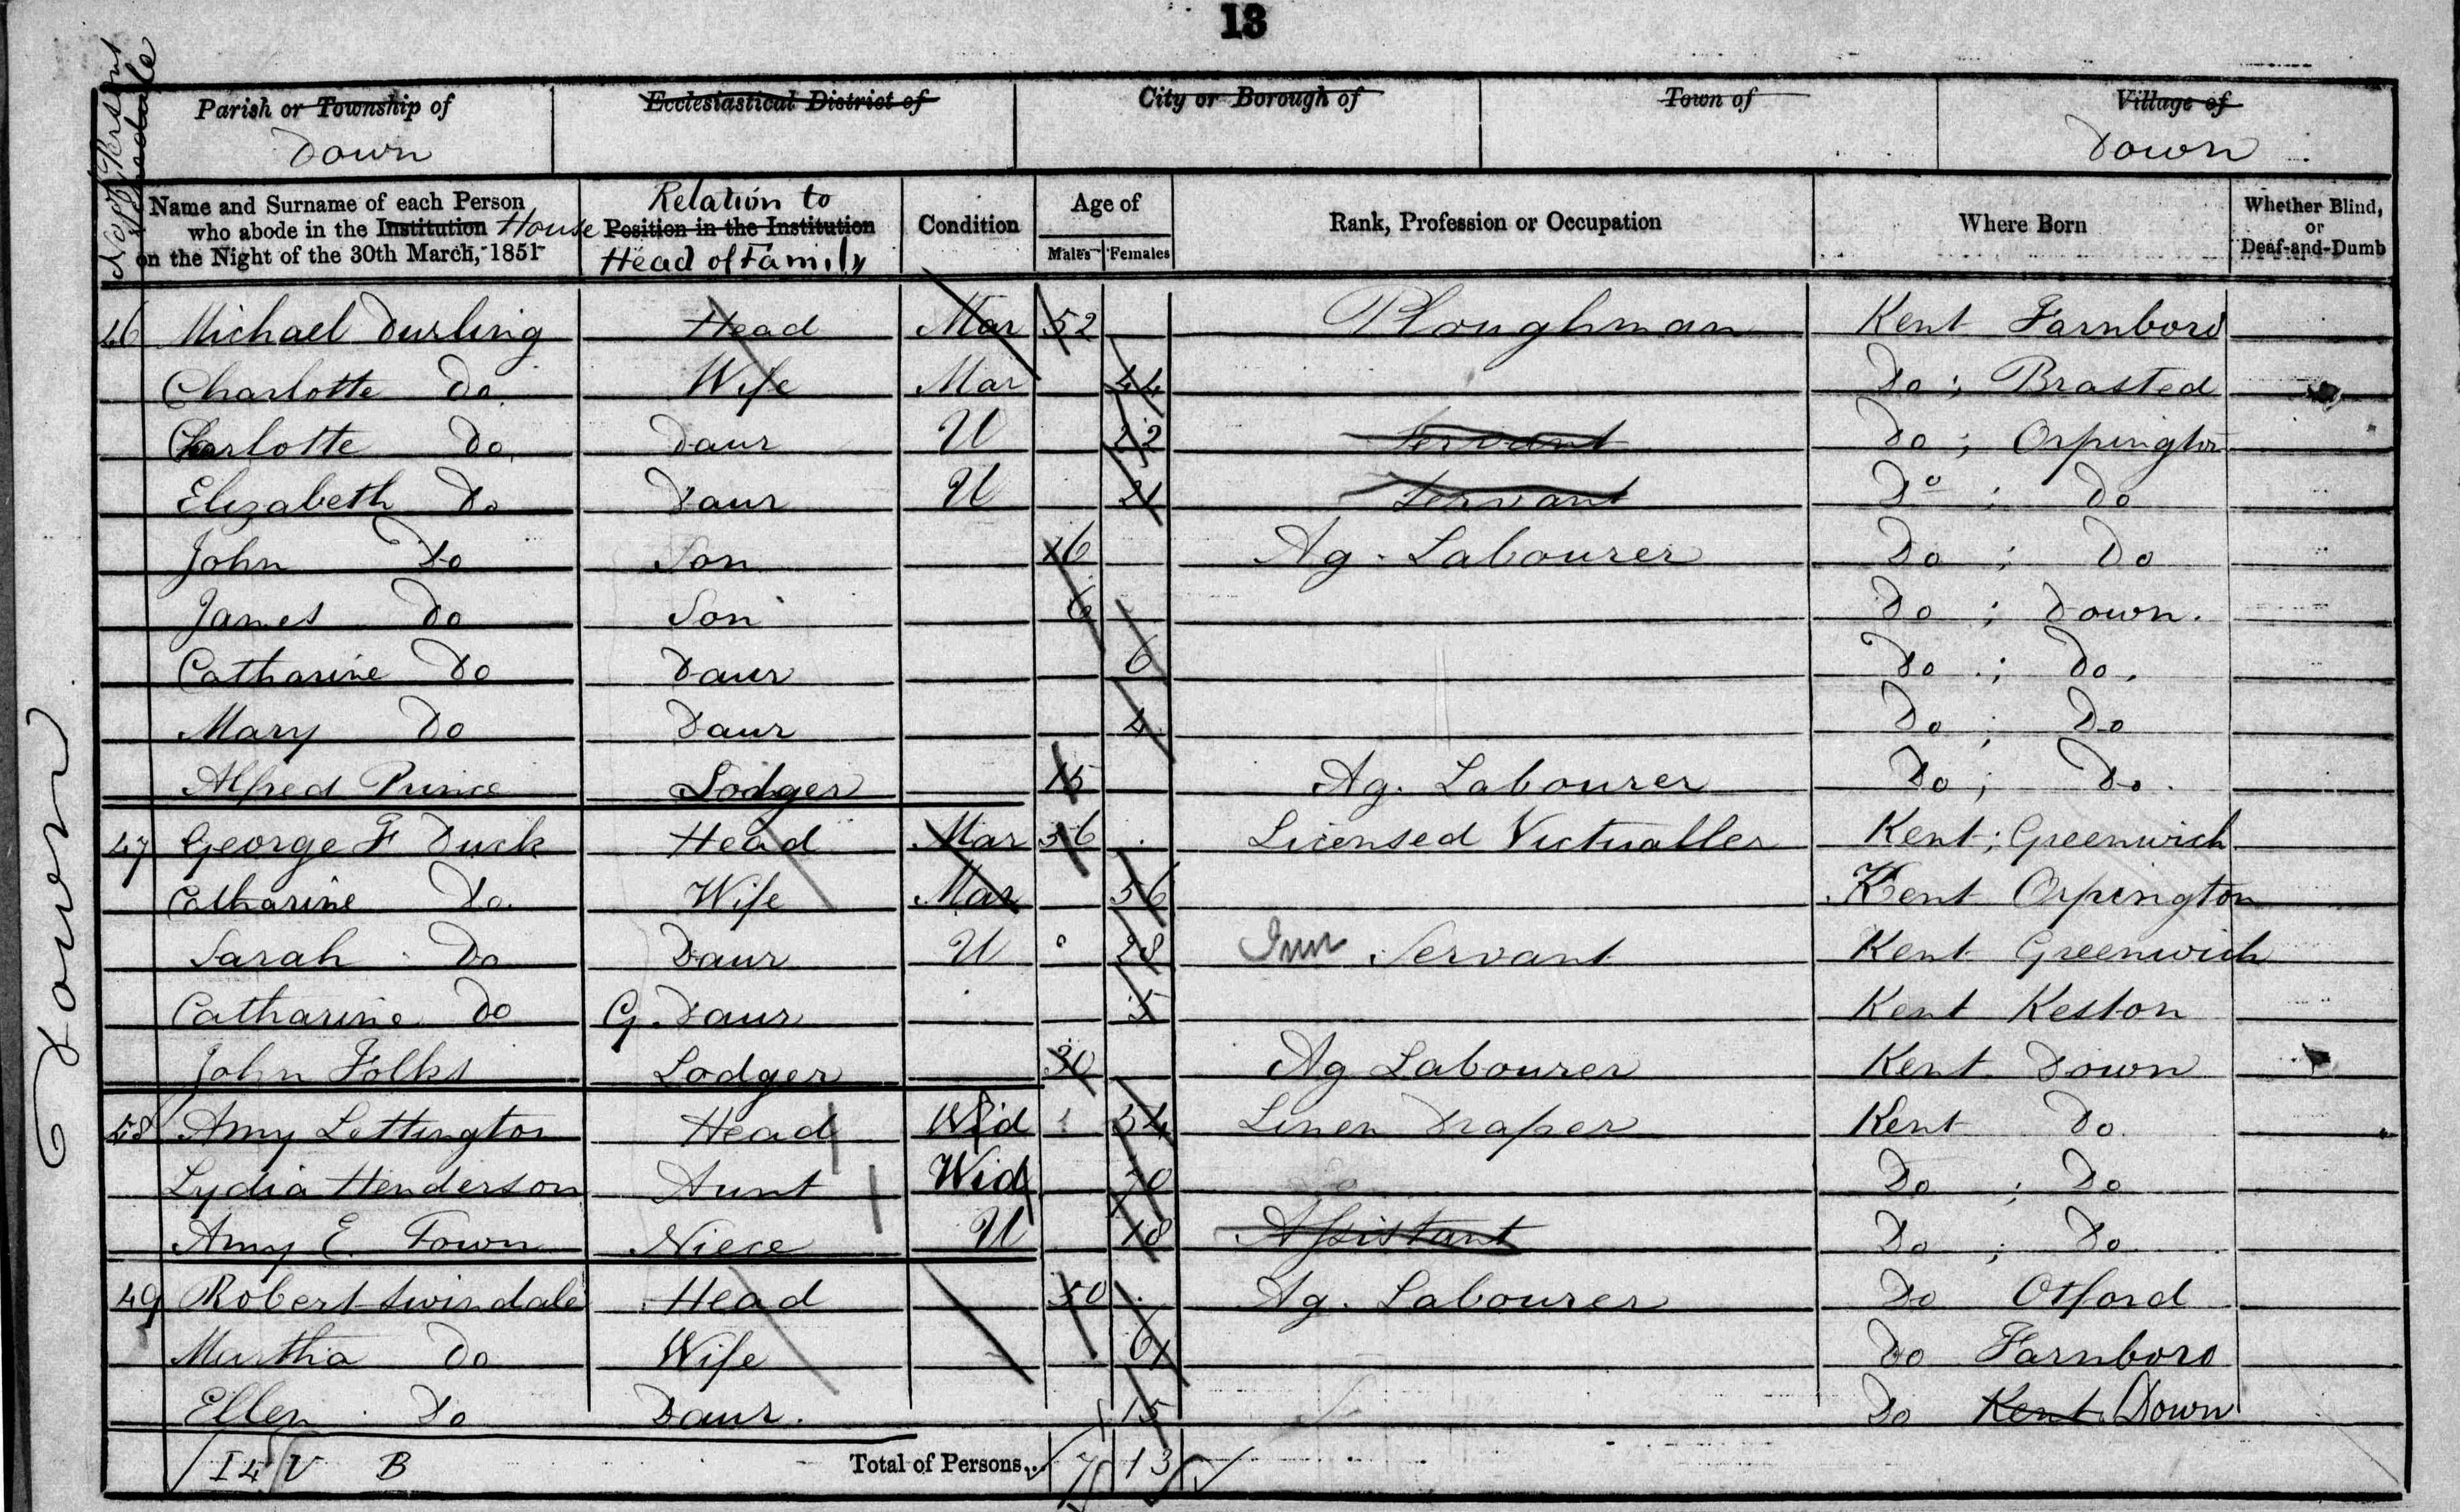 13
No. of Persons Schedule
Parish or Township of Ecclesiastical District of City or Borough of Town of Village of
Down Down
Name and Surname of each Person who abode in the Institution House on the Night of the 30th March, 1851
Relation to Position in the Institution Head of Family
Condition
Age of
Males Females
Rank, Profession or Occupation
Where Born
Whether Blind, or Deaf-and-Dumb
46 Michael Durling Head Mar 52 Ploughman Kent Farnboro
Charlotte Do. Wife Mar 44 Do ; Brasted
Charlotte Do. Daur U 22 Servant Do ; Orpington
Elizabeth Do Daur U 21 Servant Do ; Do
John Do Son 16 Ag. Labourer Do ; Do
James Do Son 6 Do ; Down.
Catharine Do Daur 6 Do ; Do.
Mary Do Daur 4 Do ; Do
Alfred Prince Lodger 15 Ag. Labourer Do ; Do.
47 George F Duck Head Mar 56 Licensed Victualler Kent ; Greenwich
Catharine Do. Wife Mar 56 Kent Orpington
Sarah Do Daur U 28 Inn Servant Kent Greenwich
Catharine Do G. Daur 5 Kent Keston
John Folks Lodger 30 Ag Labourer Kent Down
48 Amy Lettington Head Wid 54 Linen Draper Kent Do
Lydia Henderson Aunt Wid 70 Do ; Do
Amy E. Town Niece U 18 Assistant Do ; Do
49 Robert Swindale Head 50 Ag. Labourer Do Otford
Martha Do Wife 61 Do Farnboro
Ellen Do Daur. 15 Do Kent Down
I 4 V B Total of Persons... 7 13
Down